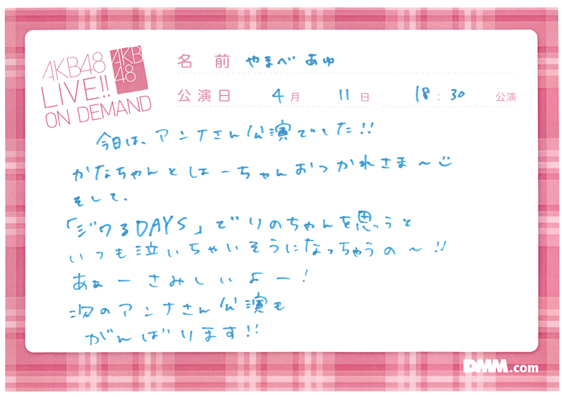 AKB48
LIVE!!
ON DEMAND
AKB
48
名 前 やまべ あゆ
公演日 4月 11日 18:30 公演
今日は、アンナさん公演でした!!
かなちゃんとしーちゃんおつかれさま〜
そして、
「ジワるDAYS」でりのちゃんを思うと
いつも泣いちゃいそうになっちゃうの〜!!
あぁーさみしいよー!
次のアンナさん公演も
がんばります!!
DMM.com